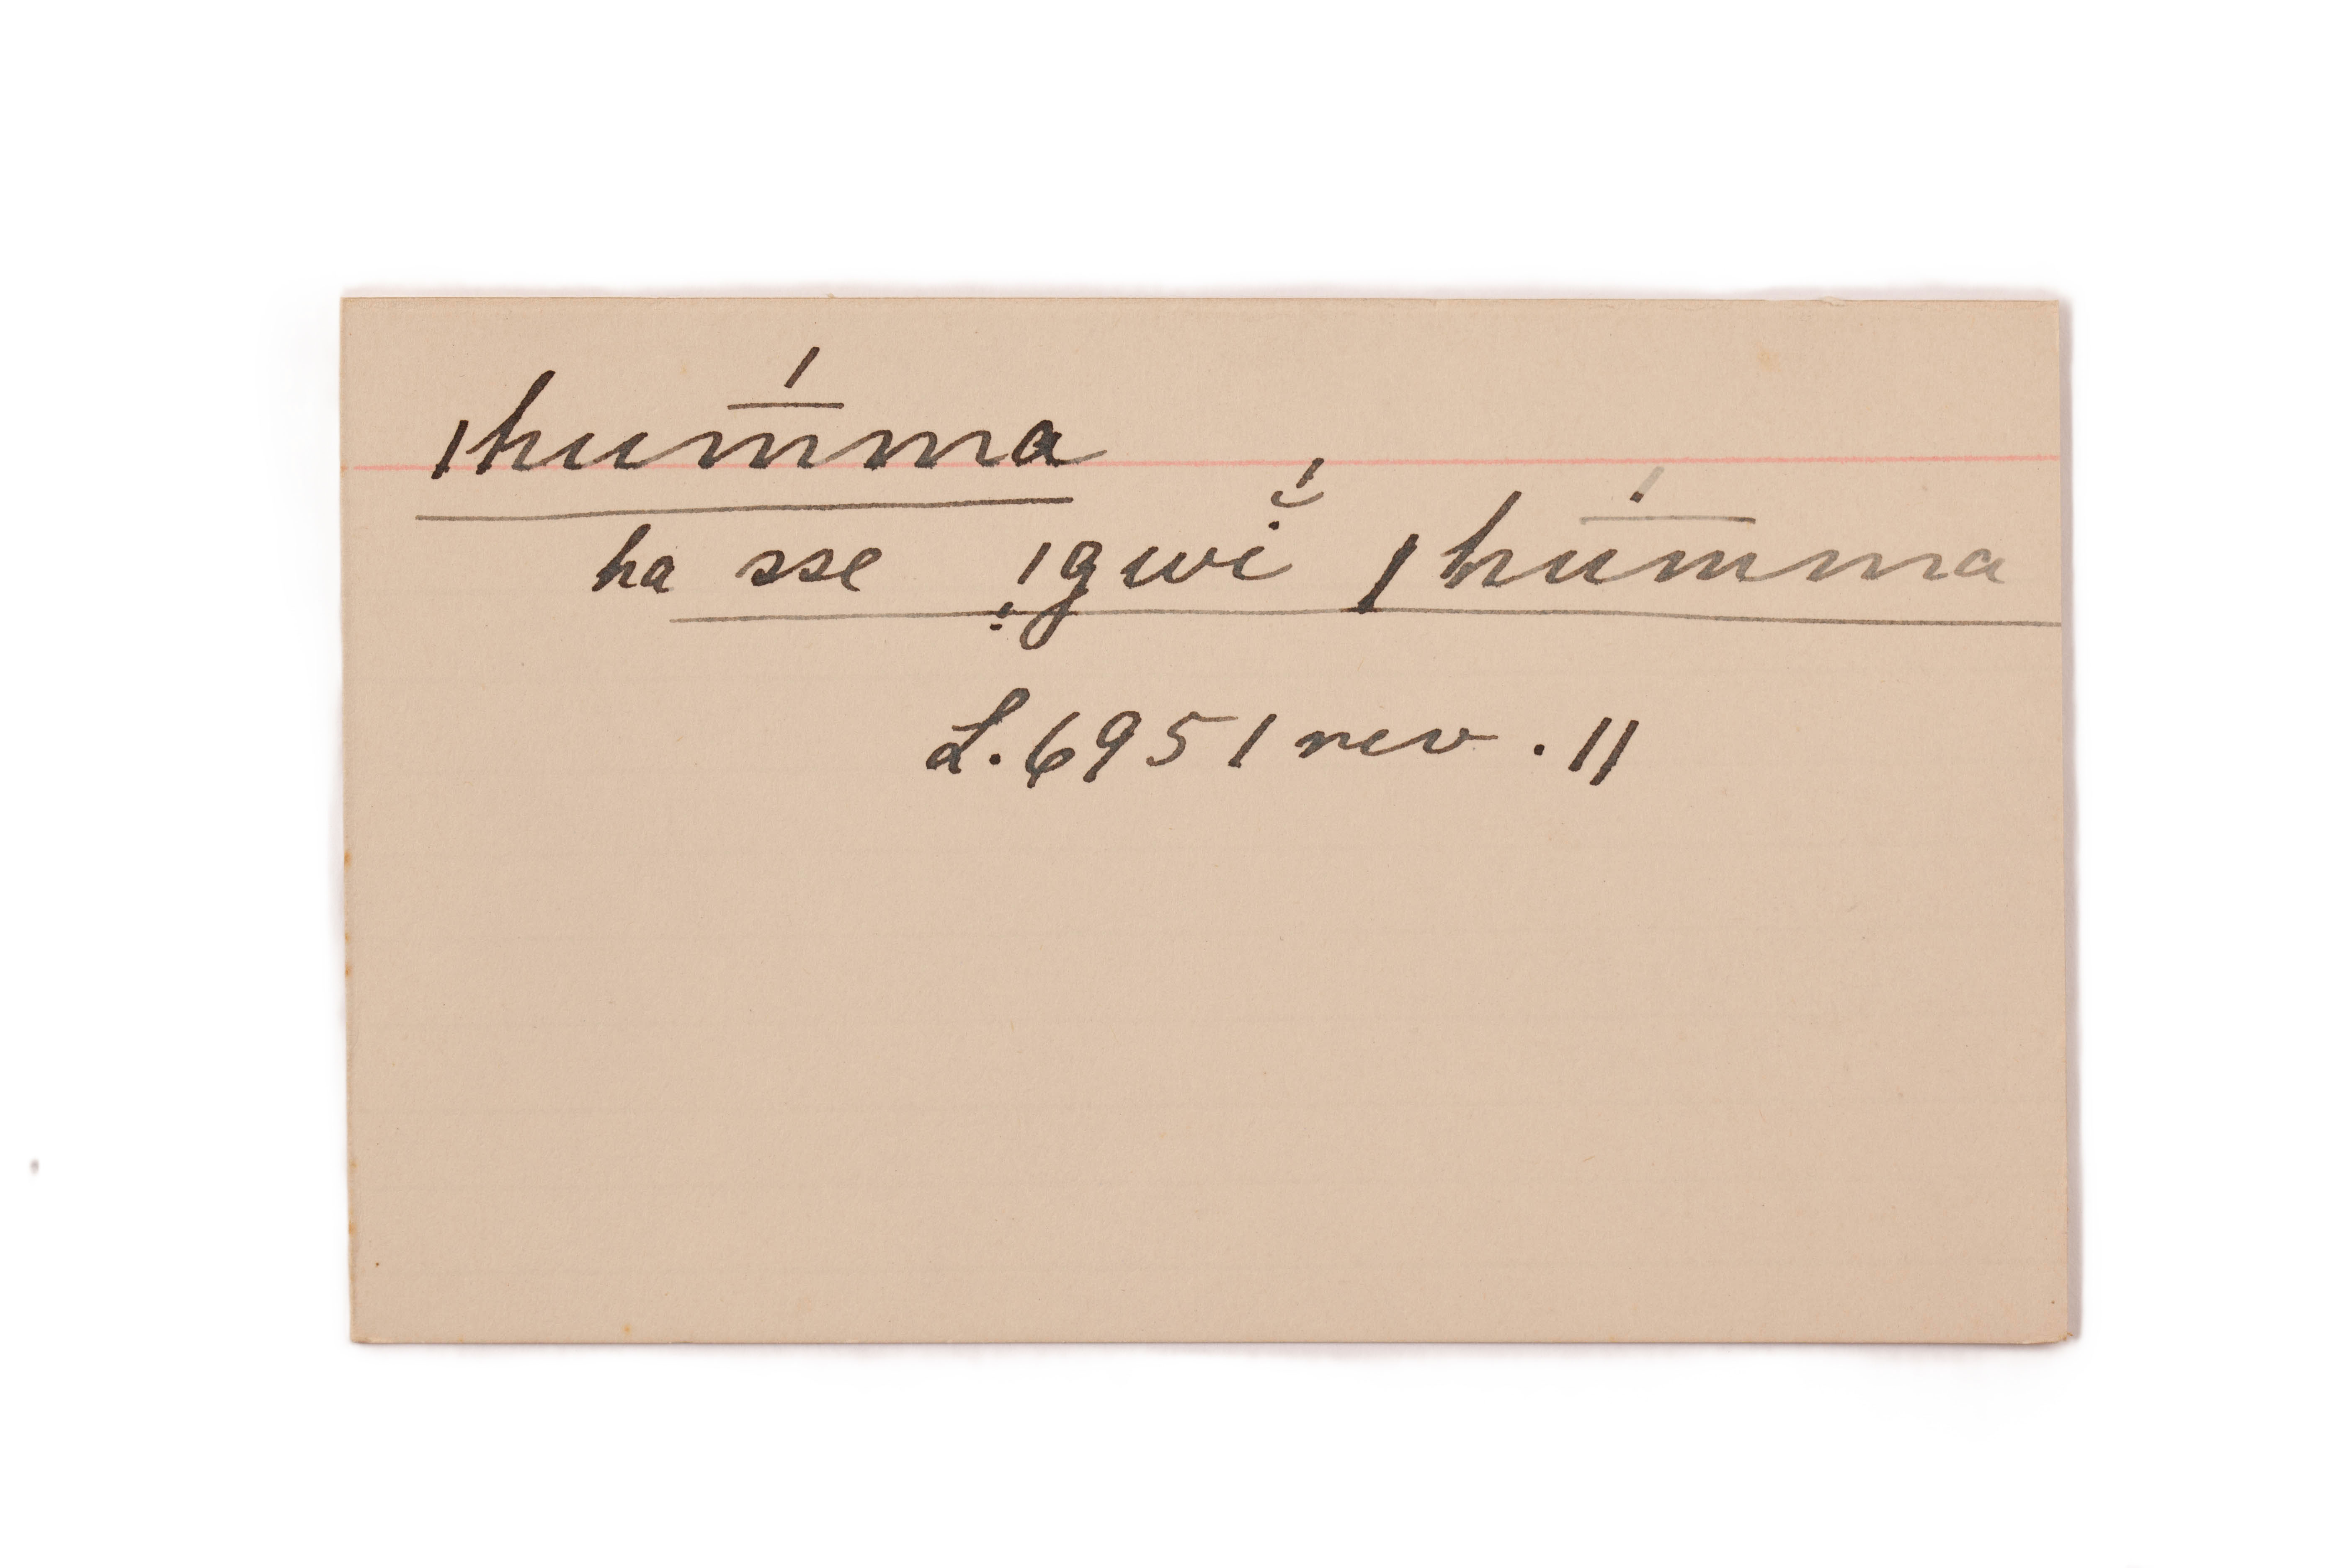 ǀhum̄́ma
ha sse ǃgwĭ́ ǀhum̄́ma
L. 6951 rev. 11